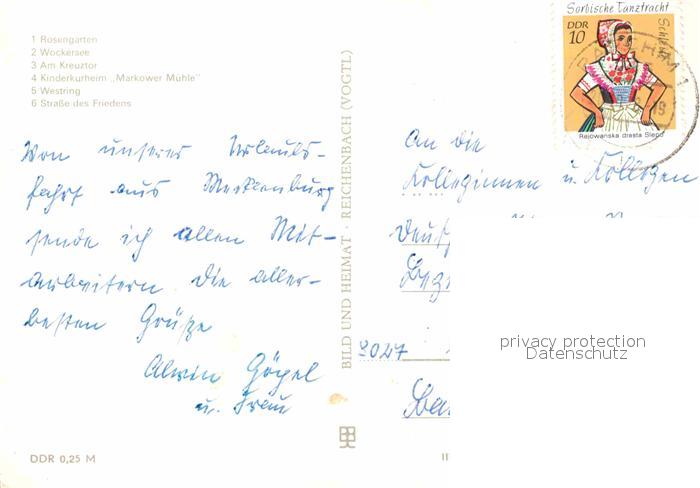 1 Rosengarten
2 Wockersee
3 Am Kreuztor
4 Kinderkurheim „Markower Mühle"
5 Westring
6 Straße des Friedens
Von unserer Urlaubs-
fahrt aus Mecklenburg
sende ich allen Mit-
arbeitern die aller-
besten Grüße
Alwin Gögel
u. Frau
DDR 0,25 M
BILD UND HEIMAT · REICHENBACH (VOGTL)
Sorbische Tanztracht
Schleife
DDR
10
Rejowanska drasta Slepo
An die
Kolleginnen u. Kollegen
Deut
Bezi
9027
privacy protection
Datenschutz